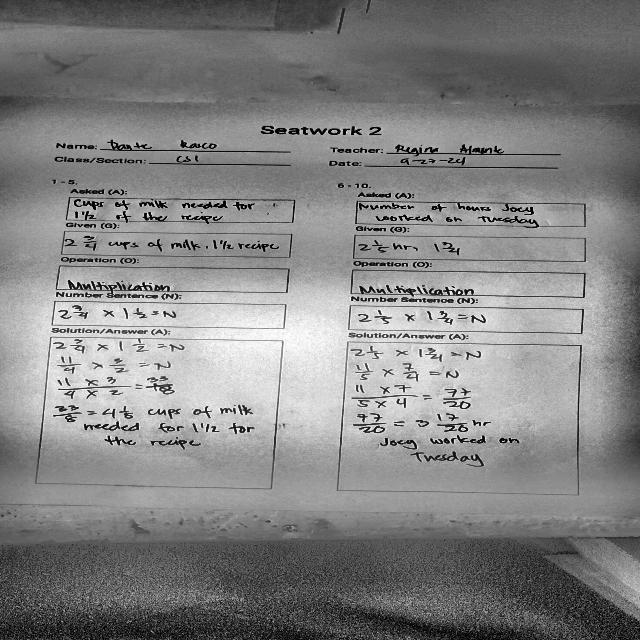 Seatwork 2
Name: Dante Rosco
Teacher: Regina
Class/Section: CS1
Date: 9-27-24
1 - 5.
Asked (A):
Cups of milk needed for
1 1/2 of the recipe
Given (G):
2 3/4 cups of milk, 1 1/2 recipe
Operation (O):
Multiplication
Number Sentence (N):
2 3/4 x 1 1/2 = N
Solution/Answer (A):
2 3/4 x 1 1/2 = N
11/4 x 3/2 = N
11 x 3 / 4 x 2 = 33/8
33/8 = 4 1/8 cups of milk
needed for 1 1/2 for
the recipe
6 - 10.
Asked (A):
Number of hours Joey
worked on Tuesday
Given (G):
2 1/5 hr, 1 3/4
Operation (O):
Multiplication
Number Sentence (N):
2 1/5 x 1 3/4 = N
Solution/Answer (A):
2 1/5 x 1 3/4 = N
11/5 x 7/4 = N
11 x 7 / 5 x 4 = 77/20
77/20 = 3 17/20 hr
Joey worked on
Tuesday